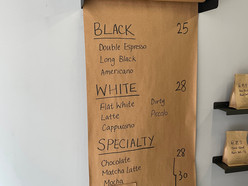 BLACK 25
Double Espresso
Long Black
Americano
WHITE 28
Flat White Dirty
Latte Piccolo
Cappucino
SPECIALTY
Chocolate 28
Matcha Latte
Mocha 30